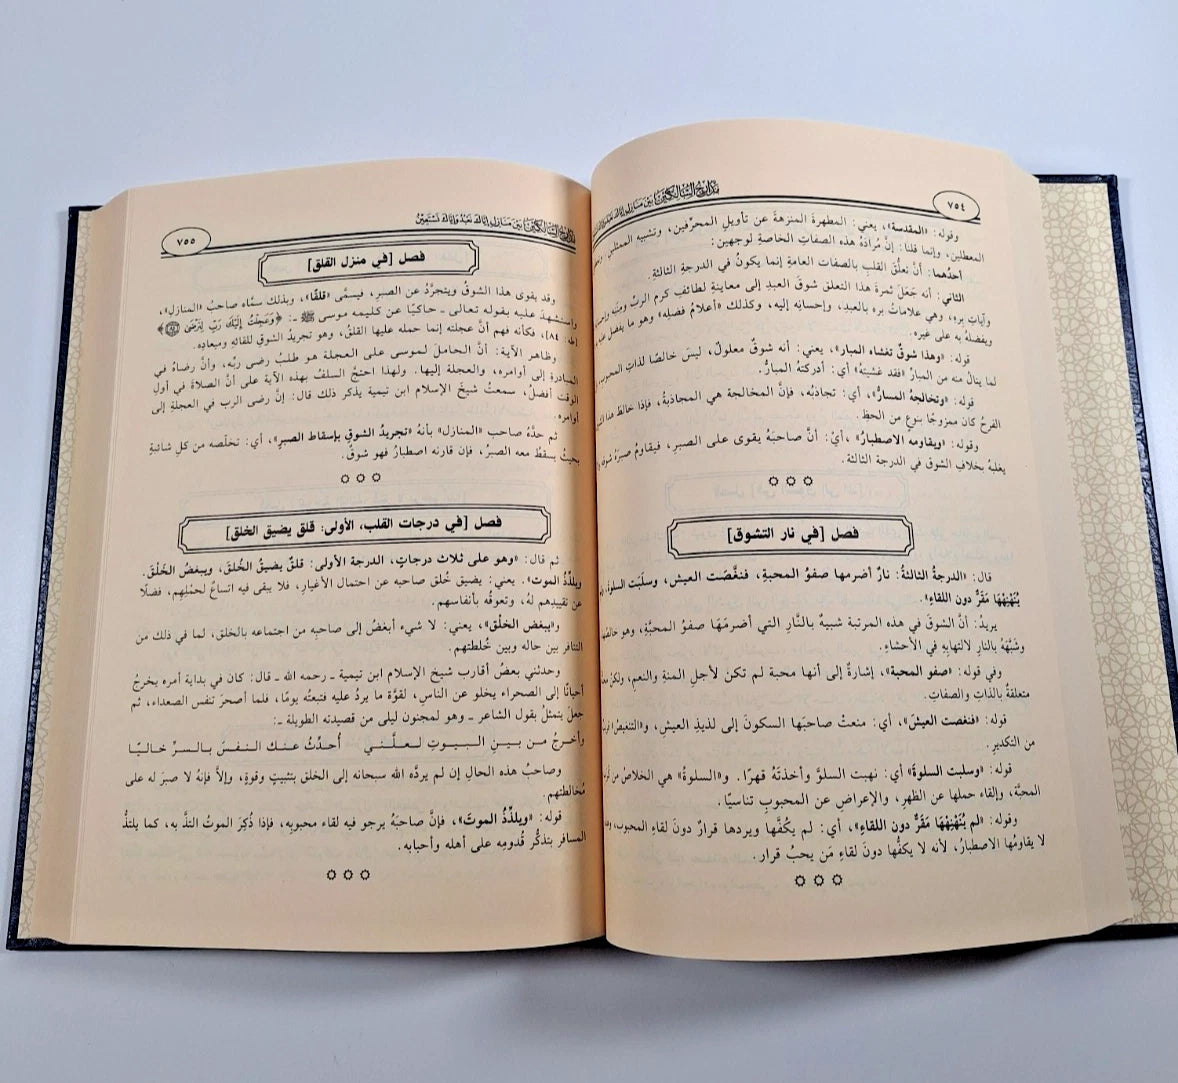 ٧٥٤
مدارج السالكين بين منازل إياك نعبد وإياك
وقوله: «المقدسة»، يعني: المطهرة المنزهةَ عن تأويلِ المحرِّفين، وتشبيه الممثلي
المعطلين، وإنما قلنا: إنَّ مُرادَهُ هذه الصفات الخاصةِ لوجهين:
أحدُهما: أنَّ تعلُّقَ القلبِ بالصفات العامةِ إنما يكونُ في الدرجةِ الثالثةِ.
الثاني: أنه جَعَلَ ثمرةَ هذا التعلق شوقَ العبدِ إلى معاينةِ لطائفِ كرم الربِّ ومننِه
وآياتِ بره، وهي علاماتُ بره بالعبد، وإحسانِه إليه، وكذلك «أعلامُ فضلِه» وهو ما يفضل
ويفضلُه به على غيره.
قوله: «وهذا شوقٌ تغشاه المبار»، يعني: أنه شوقٌ معلولٌ، ليسَ خالصًا لذاتِ المحبوب،
لما ينالُ منه من المبارِّ «فقد غشيتهُ» أي: أدركتهُ المبارُّ.
قوله: «وتخالجهُ المسارُّ»، أي: تجاذبُه، فإنَّ المخالجة هي المجاذبةُ، فإذا خالط هذا
الفرحُ كان ممزوجًا بنوعٍ من الحظ.
وقوله: «ويقاومه الاصطبارُ»، أيْ: أنَّ صاحبَهُ يقوى على الصبرِ، فيقاومُ صبرُهُ
يغلبهُ بخلافِ الشوقِ في الدرجة الثالثة.
فصل [في نار التشوق]
قال: «الدرجةُ الثالثةُ: نارٌ أضرمها صفوُ المحبةِ، فنغَّصَت العيش، وسلَبَت السلوةَ،
يُنَهْنِهْهَا مَقَرٌّ دون اللقاءِ».
يريدُ: أنَّ الشوقَ في هذه المرتبةِ شبيهٌ بالنَّارِ التي أضرمَهَا صفوُ المحبَّةِ، وهو
وشَبَّهَهُ بالنارِ لالتهابِهِ في الأحشاءِ.
وفي قوله: «صفو المحبة»، إشارةٌ إلى أنها محبة لم تكن لأجلِ المنةِ والنعمِ، ولكنْ
متعلقةٌ بالذاتِ والصفاتِ.
قوله: «فنغصت العيشَ»، أي: منعتْ صاحبَها السكونَ إلى لذيذِ العيشِ،
من التكديرِ.
قوله: «وسلبت السلوةَ» أي: نهبت السلوَّ وأخذتَهُ قهرًا. و«السلوةُ» هي الخلاصُ من
المحبَّة، وإلقاء حملها عن الظهرِ، والإعراضِ عن المحبوبِ تناسيًا.
وقوله: «لم يُنَهْنِهْهَا مَقَرٌّ دون اللقاءِ»، أي: لم يكُفَّها ويردها قرارٌ دونَ لقاءِ المحبوبِ،
لا يقاومُها الاصطبارُ، لأنه لا يكفُّها دونَ لقاءِ مَن يحبُ قرار.
٧٥٥
مدارج السالكين بين منازل إياك نعبد وإياك نستعين
فصل [في منزل القلق]
وقد يقوى هذا الشوقُ ويتجرَّدُ عن الصبرِ، فيسمَّى «قلقًا»، وبذلك سمَّاه صاحبُ «المنازلِ»،
واستشهدَ عليه بقوله تعالى ـ حاكيًا عن كليمه موسى ﷺ ـ: ﴿وَعَجِلْتُ إِلَيْكَ رَبِّ لِتَرْضَىٰ ٨٤﴾
[طه: ٨٤]، فكأنه فهم أنَّ عجلته إنما حمله عليها القلقُ، وهو تجريدُ الشوقِ للقائِهِ وميعادِه.
وظاهر الآية: أنَّ الحاملَ لموسى على العجلة هو طلبُ رضى ربِّه، وأنَّ رضاهُ في
المبادرةِ إلى أوامره، والعجلة إليها. ولهذا احتجَّ السلفُ بهذه الآية على أنَّ الصلاةَ في أولِ
الوقتِ أفضلُ، سمعتُ شيخَ الإسلامِ ابن تيمية يذكر ذلك قال: إنَّ رضى الرب في العجلةِ إلى
أوامره.
ثم حدَّهُ صاحب «المنازل» بأنه «تجريدُ الشوقِ بإسقاط الصبرِ»، أي: تخلّصه من كلِ شائبةٍ
بحيثُ يسقطُ معه الصبرُ، فإن قارنه اصطبارٌ فهو شوقٌ.
فصل [في درجات القلب، الأولى: قلق يضيق الخلق]
ثم قال: «وهو على ثلاث درجاتٍ، الدرجة الأولى: قلقٌ يضيقُ الخُلقَ، ويبغضُ الخَلْقَ.
ويلذِّذُ الموت». يعني: يضيق خُلق صاحبه عن احتمال الأغيار، فلا يبقى فيه اتساعٌ لحملِهم، فضلًا
عن تقييدِهم لهُ، وتعوقُه بأنفاسهم.
و«يبغض الخلْق»، يعني: لا شيء أبغضُ إلى صاحبه من اجتماعه بالخلق، لما في ذلك من
التنافر بين حاله وبين خُلطتهم.
وحدثني بعضُ أقاربِ شيخ الإسلام ابن تيمية ـ رحمه الله ـ قال: كان في بداية أمره يخرجُ
أحيانًا إلى الصحراء يخلو عن الناسِ، لقوَّةِ ما يردُ عليه فتبعتُه يومًا، فلما أصحرَ تنفس الصعداءَ، ثم
جعلَ يتمثلُ بقول الشاعر ـ وهو لمجنون ليلى من قصيدته الطويلة ـ:
وأخرجُ من بينِ البيوتِ لعلَّني أُحدثُ عنك النفسَ بالسرِّ خاليًا
وصاحبُ هذه الحالِ إن لم يردَّه الله سبحانه إلى الخلق بتثبيتٍ وقوةٍ، وإلاَّ فإنهُ لا صبرَ له على
مُخالطتهم.
قوله: «ويلذِّذُ الموتَ»، فإنَّ صاحبَهُ يرجو فيه لقاء محبوبِه، فإذا ذُكِرَ الموتُ التذَّ به، كما يلتذُّ
المسافر بتذكُّرِ قُدومِه على أهله وأحبابه.